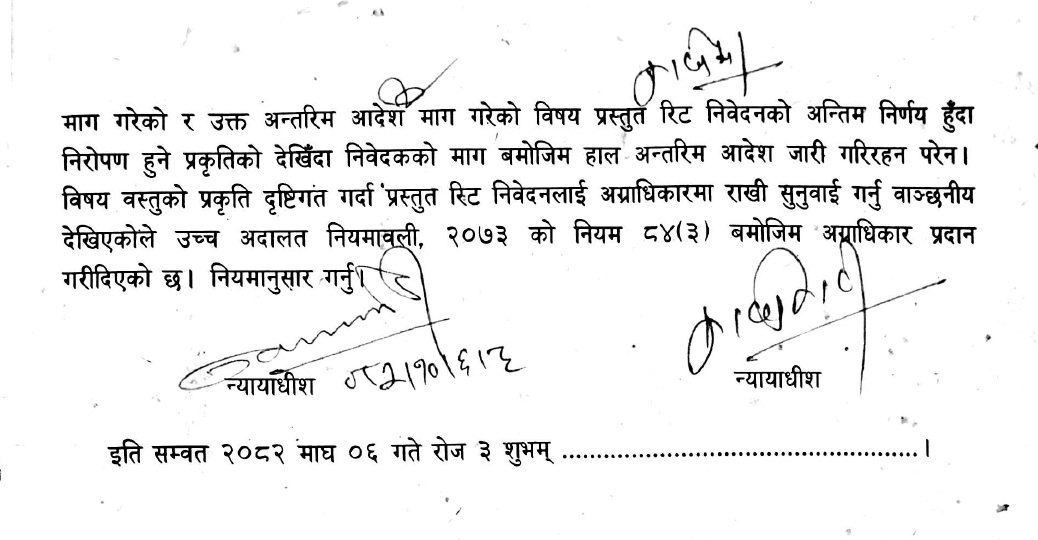 माग गरेको र उक्त अन्तरिम आदेश माग गरेको विषय प्रस्तुत रिट निवेदनको अन्तिम निर्णय हुँदा
निरोपण हुने प्रकृतिको देखिँदा निवेदकको माग बमोजिम हाल अन्तरिम आदेश जारी गरिरहन परेन।
विषय वस्तुको प्रकृति दृष्टिगत गर्दा प्रस्तुत रिट निवेदनलाई अग्राधिकारमा राखी सुनुवाई गर्नु वाञ्छनीय
देखिएकोले उच्च अदालत नियमावली, २०७३ को नियम ८४(३) बमोजिम अग्राधिकार प्रदान
गरीदिएको छ। नियमानुसार गर्नु।
न्यायाधीश
न्यायाधीश
इति सम्वत २०८२ माघ ०६ गते रोज ३ शुभम् ......................................................।